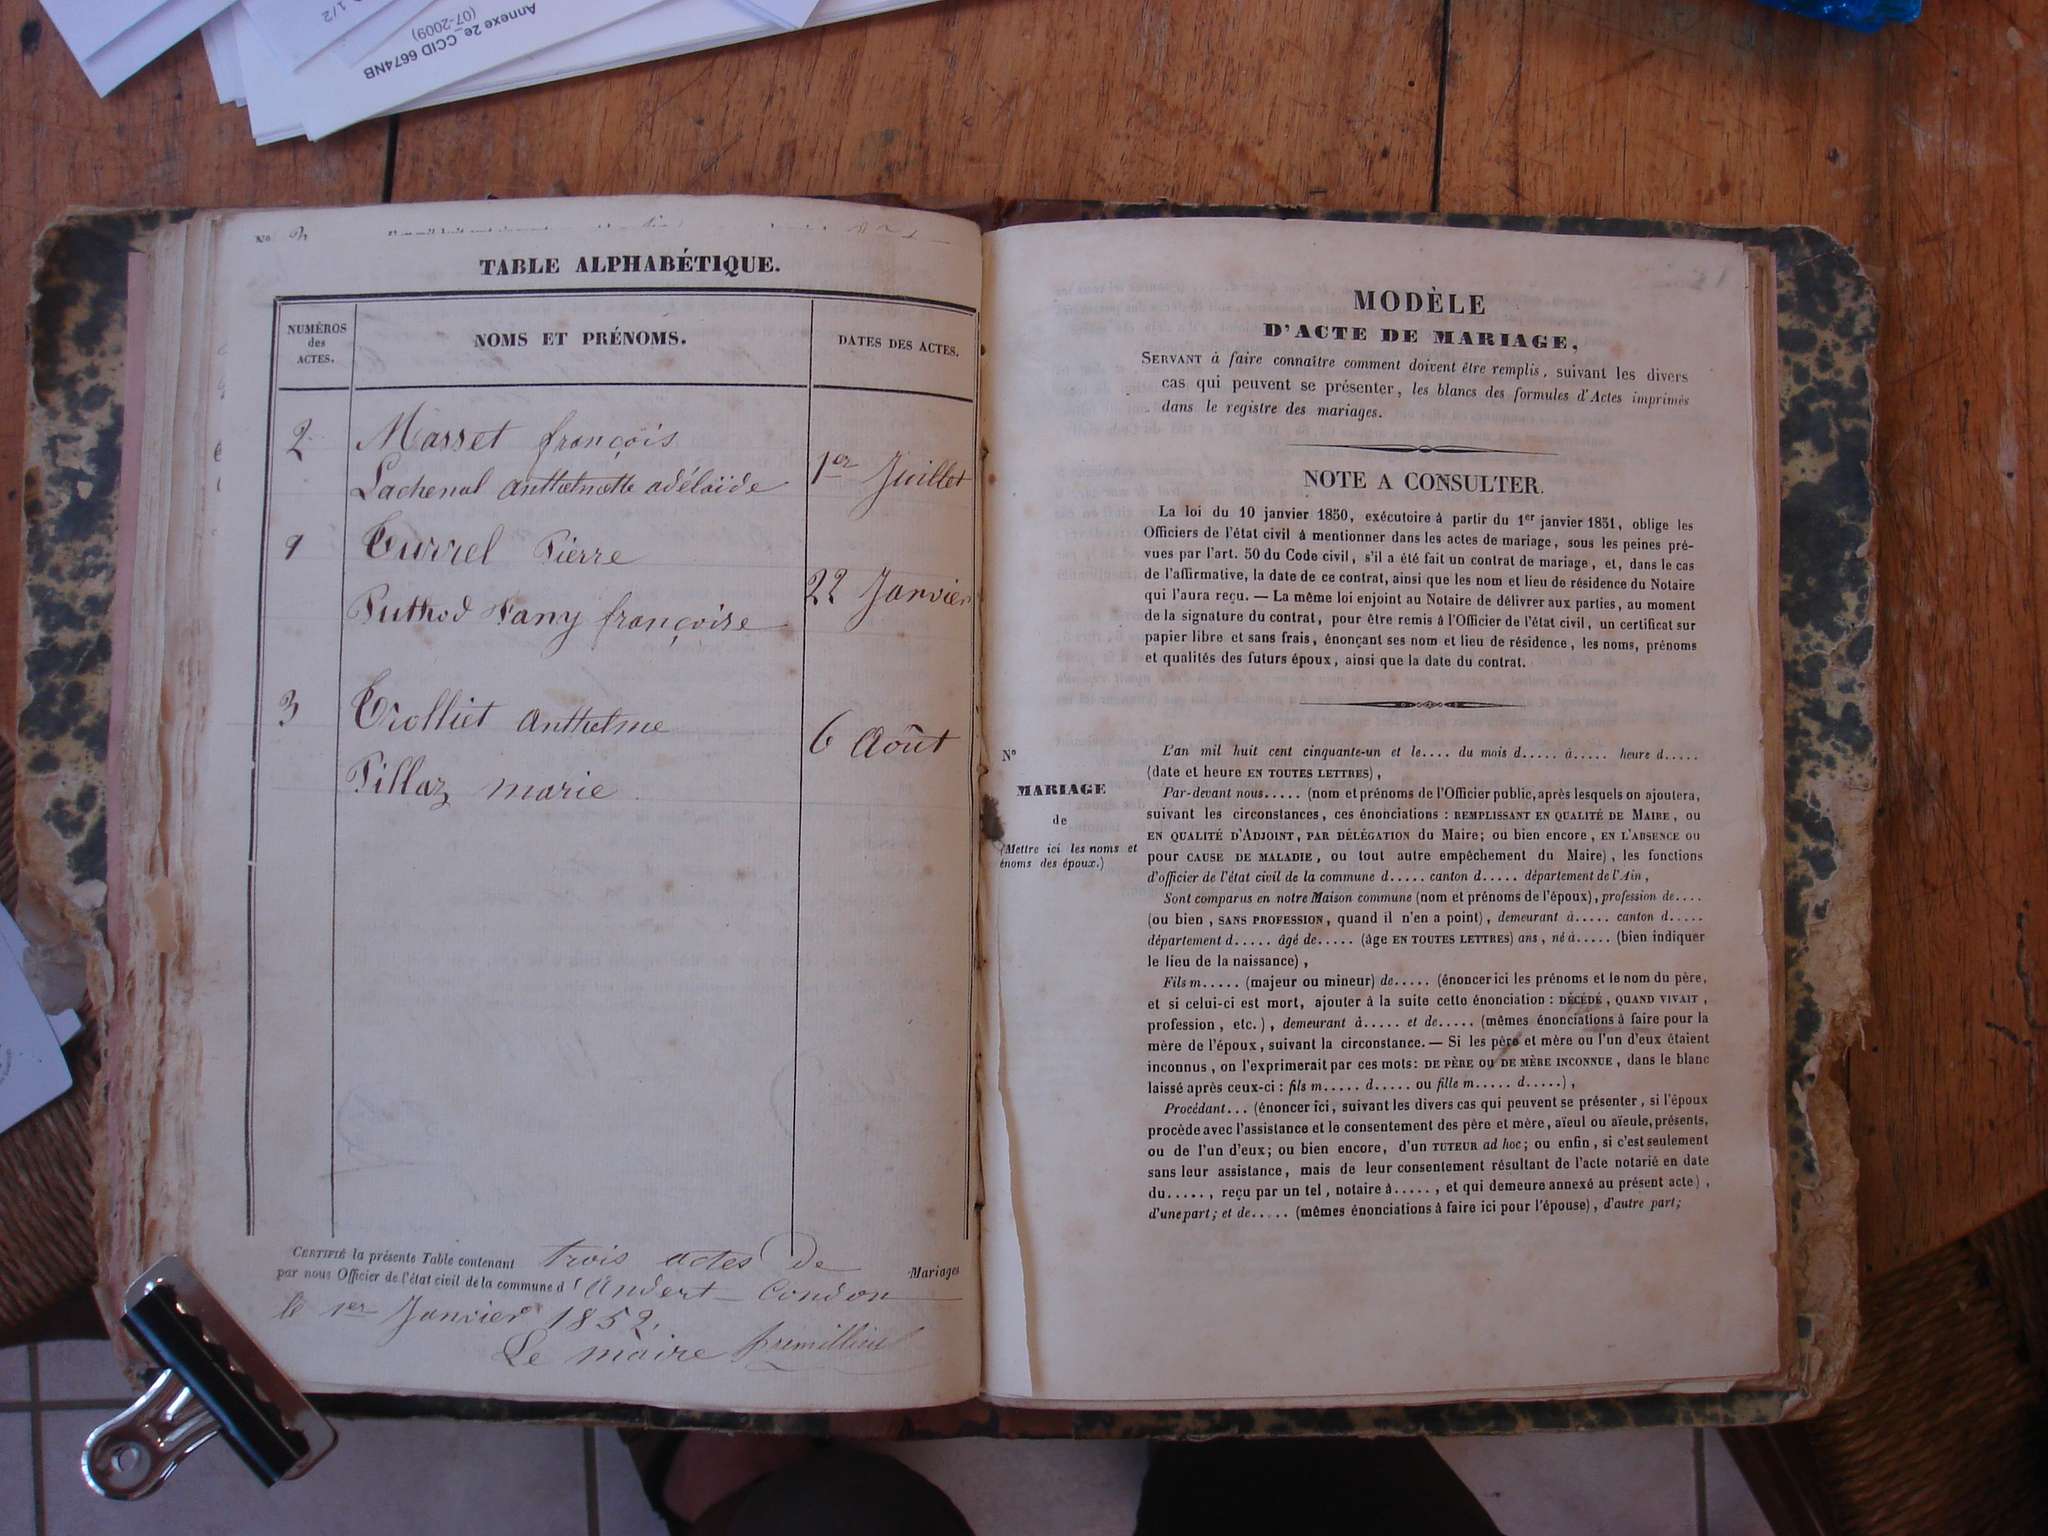 Annexe 2e_CCID 6674NB
(07-2009)
1/2
TABLE ALPHABÉTIQUE.
NUMÉROS
des
ACTES.
NOMS ET PRÉNOMS.
DATES DES ACTES.
2 Masset françois
Lachenal anthelmette adélaïde 1er Juillet
1 Turrel Pierre
Puthod Fany françoise 22 Janvier
3 Trolliet anthelme
Pillaz marie 6 Août
CERTIFIÉ la présente Table contenant trois actes de Mariages
par nous Officier de l'état civil de la commune d'Andert-Condon
le 1er Janvier 1852.
Le maire
MODÈLE
D'ACTE DE MARIAGE,
SERVANT à faire connaître comment doivent être remplis, suivant les divers
cas qui peuvent se présenter, les blancs des formules d'Actes imprimés
dans le registre des mariages.
NOTE A CONSULTER.
La loi du 10 janvier 1850, exécutoire à partir du 1er janvier 1851, oblige les
Officiers de l'état civil à mentionner dans les actes de mariage, sous les peines pré-
vues par l'art. 50 du Code civil, s'il a été fait un contrat de mariage, et, dans le cas
de l'affirmative, la date de ce contrat, ainsi que les nom et lieu de résidence du Notaire
qui l'aura reçu. — La même loi enjoint au Notaire de délivrer aux parties, au moment
de la signature du contrat, pour être remis à l'Officier de l'état civil, un certificat sur
papier libre et sans frais, énonçant ses nom et lieu de résidence, les noms, prénoms
et qualités des futurs époux, ainsi que la date du contrat.
N°
MARIAGE
de
(Mettre ici les noms et
énoms des époux.)
L'an mil huit cent cinquante-un et le.... du mois d..... à..... heure d.....
(date et heure EN TOUTES LETTRES),
Par-devant nous..... (nom et prénoms de l'Officier public, après lesquels on ajoutera,
suivant les circonstances, ces énonciations : REMPLISSANT EN QUALITÉ DE MAIRE, ou
EN QUALITÉ D'ADJOINT, PAR DÉLÉGATION du Maire; ou bien encore, EN L'ABSENCE ou
pour CAUSE DE MALADIE, ou tout autre empêchement du Maire), les fonctions
d'officier de l'état civil de la commune d..... canton d..... département de l'Ain,
Sont comparus en notre Maison commune (nom et prénoms de l'époux), profession de....
(ou bien, SANS PROFESSION, quand il n'en a point), demeurant à..... canton d.....
département d..... âgé de..... (âge EN TOUTES LETTRES) ans, né à..... (bien indiquer
le lieu de la naissance),
Fils m..... (majeur ou mineur) de..... (énoncer ici les prénoms et le nom du père,
et si celui-ci est mort, ajouter à la suite cette énonciation : DÉCÉDÉ, QUAND VIVAIT,
profession, etc.), demeurant à..... et de..... (mêmes énonciations à faire pour la
mère de l'époux, suivant la circonstance. — Si les père et mère ou l'un d'eux étaient
inconnus, on l'exprimerait par ces mots: DE PÈRE ou DE MÈRE INCONNUE, dans le blanc
laissé après ceux-ci : fils m..... d..... ou fille m..... d.....),
Procédant... (énoncer ici, suivant les divers cas qui peuvent se présenter, si l'époux
procède avec l'assistance et le consentement des père et mère, aïeul ou aïeule, présents,
ou de l'un d'eux; ou bien encore, d'un TUTEUR ad hoc; ou enfin, si c'est seulement
sans leur assistance, mais de leur consentement résultant de l'acte notarié en date
du....., reçu par un tel, notaire à....., et qui demeure annexé au présent acte),
d'une part; et de..... (mêmes énonciations à faire ici pour l'épouse), d'autre part;